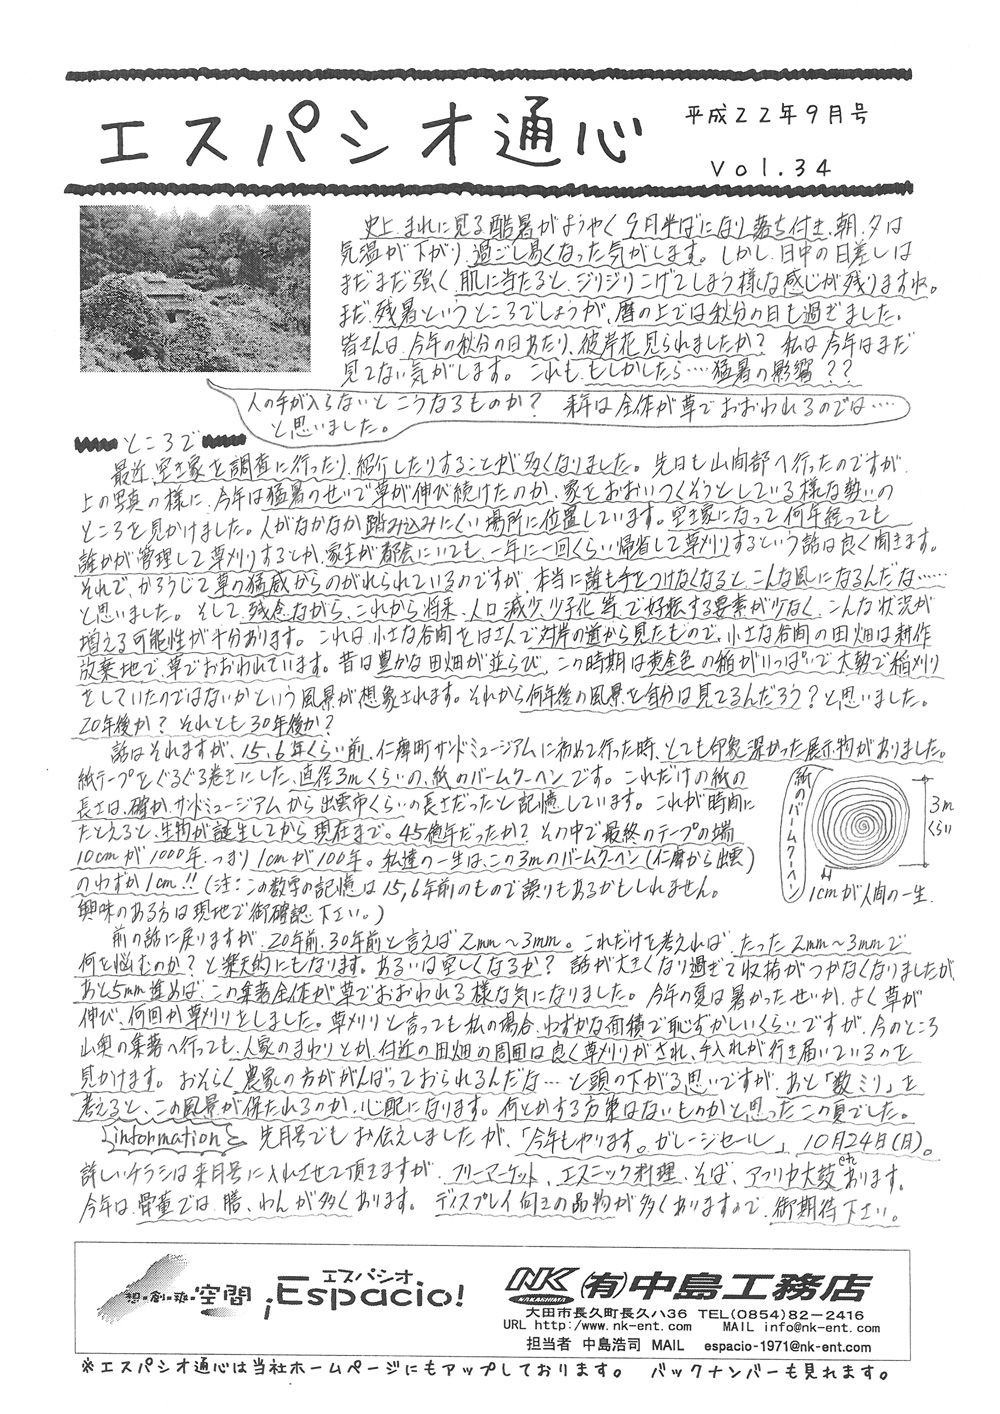 エスパシオ通心
平成22年9月号
Vol.34
史上まれに見る酷暑がようやく9月半ばになり落ち付き、朝、夕は
気温が下がり、過ごし易くなった気がします。しかし、日中の日差しは
まだまだ強く、肌に当たると、ジリジリこげてしまう様な感じが残りますね。
まだ、残暑というところでしょうが、暦の上では秋分の日も過ぎました。
皆さんは、今年の秋分の日あたり、彼岸花見られましたか？ 私は今年はまだ
見てない気がします。これも、もしかしたら…猛暑の影響？？
人の手が入らないと、こうなるものか？ 来年は全体が草でおおわれるのでは……
と思いました。
ところで
最近、空き家を調査に行ったり、紹介したりすることが多くなりました。先日も山間部へ行ったのですが、
上の写真の様に、今年は猛暑のせいで草が伸び続けたのか、家をおおいつくそうとしている様な勢いの
ところを見かけました。人がなかなか踏み込みにくい場所に位置しています。空き家になって何年経っても
誰かが管理して草刈りするとか、家主が都会にいても、一年に一回くらい帰省して草刈りするという話は良く聞きます。
それで、かろうじて草の猛威からのがれられているのですが、本当に誰も手をつけなくなると、こんな風になるんだな……
と思いました。そして、残念ながら、これから将来、人口減少、少子化等で好転する要素が少なく、こんな状況が
増える可能性が十分あります。これは、小さな谷間をはさんで対岸の道から見たもので、小さな谷間の田畑は耕作
放棄地で、草でおおわれています。昔は豊かな田畑が並らび、この時期は黄金色の稲がいっぱいで大勢で稲刈り
をしていたのではないかという風景が想象されます。それから何年後の風景を自分は見てるんだろう？と思いました。
20年後か？ それとも30年後か？
話はそれますが、15,6年くらい前、仁摩町サンドミュージアムに初めて行った時、とても印象深かった展示物がありました。
紙テープをぐるぐる巻きにした、直径3mくらいの、紙のバームクーヘンです。これだけの紙の
長さは、確かサンドミュージアムから出雲市くらいの長さだったと記憶しています。これが時間に
たとえると、生物が誕生してから現在まで。45億年だったか？その中で最終のテープの端
10cmが1000年、つまり1cmが100年。私達の一生は、この3mのバームクーヘン(仁摩から出雲)
のわずか1cm!!(注:この数字の記憶は15,6年前のもので誤りもあるかもしれません。
興味のある方は現地で御確認下さい。)
紙のバームクーヘン
3m
くらい
1cmが人間の一生
前の話に戻りますが、20年前、30年前と言えば2mm～3mm。これだけを考えれば、たった2mm～3mmで
何を悩むのか？と楽天的にもなります。あるいは空しくなるか？ 話が大きくなり過ぎて収拾がつかなくなりましたが、
あと5mm進めば、この集落全体が草でおおわれる様な気になりました。今年の夏は暑かったせいか、よく草が
伸び、何回か草刈りをしました。草刈りと言っても私の場合、わずかな面積で恥ずかしいくらいですが、今のところ
山奥の集落へ行っても、人家のまわりとか、付近の田畑の周囲は良く草刈りがされ、手入れが行き届いているのを
見かけます。おそらく農家の方ががんばっておられるんだな…と頭の下がる思いですが、あと「数ミリ」を
考えると、この風景が保たれるのか、心配になります。何とかする方策はないものかと思ったこの夏でした。
information 先月号でもお伝えしましたが、「今年もやります。ガレージセール」10月24日(日)。
詳しいチラシは来月号に入れさせて頂きますが、フリーマーケット、エスニック料理、そば、アフリカ大鼓etcあります。
今年は、骨董では、膳、わんが多くあります。ディスプレイ向きの品物が多くありますので、御期待下さい。
想・創・爽・空間
エスパシオ
¡Espacio!
NK NAKASHIMA (有)中島工務店
大田市長久町長久ハ36 TEL(0854)82-2416
URL http:/www.nk-ent.com MAIL info@nk-ent.com
担当者 中島浩司 MAIL espacio-1971@nk-ent.com
※エスパシオ通心は当社ホームページにもアップしております。 バックナンバーも見れます。